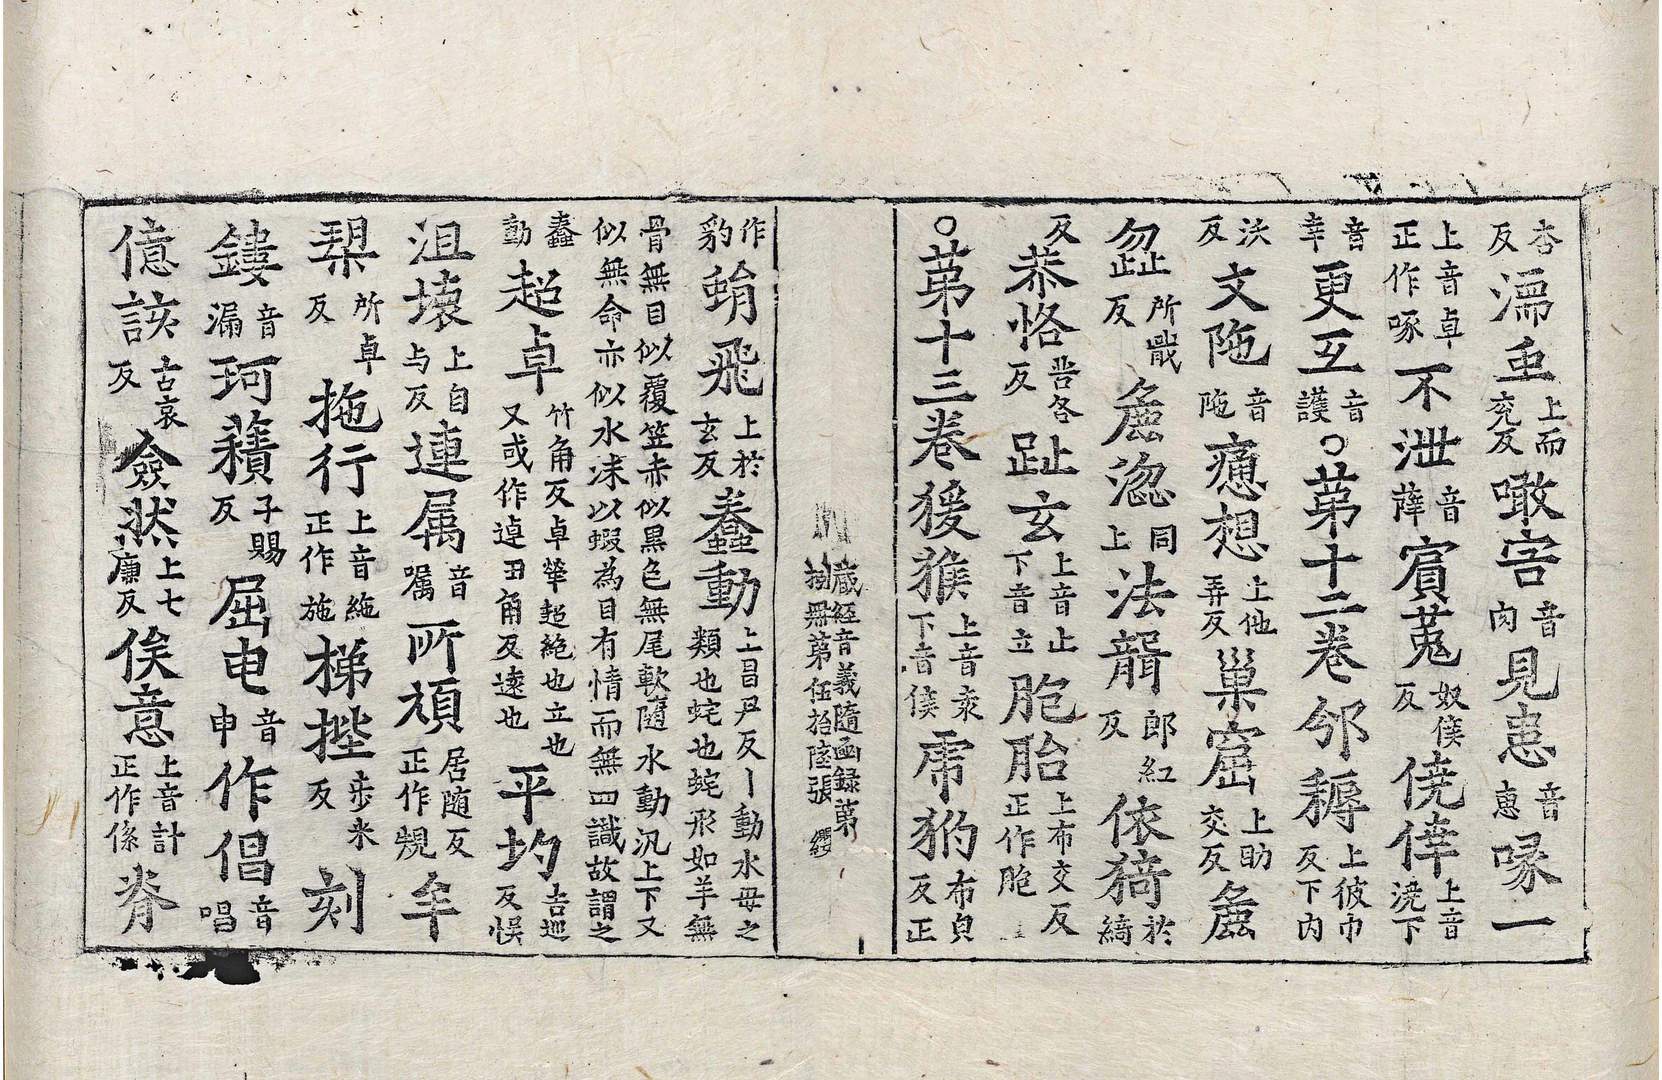 杏反濡𠄱上而兖反噉㝈音肉見恚音恵啄一
上音卓正作啄不泄音薛賔菟奴侯反僥倖上音澆下
音幸更互音護○苐十二卷邠耨上彼巾反下内
沃反文陁音陁𢟪想上他弄反巢窟上助交反麁
㔘所戢反麁淴同上法聳郎紅反依猗於綺
反恭恪苦各反趾玄上音止下音立胞胎上布交反正作胞
○苐十三卷猨猴上音袁下音侯虎犳布皃反正
藏經音義隨函録第捌冊第伍拾陸張
作豹蜎飛上於玄反蠢動上昌尹反丨動水毋之類也蛇也蛇形如羊無
骨無目似覆笠赤似黑色無尾軟隨水動汎上下又似無命亦似水沫以蝦為目有情而無四識故謂之
蠢動超卓竹角反卓犖超絶也立也又或作逴丑角反逺也平均吉巡反悮
沮壞上自与反連属音囑所䫉居随反正作規牟
槊所卓反拖行上音絁正作施梯𢱧步米反刻
鏤音漏珂𧂐子賜反屈申音申作倡音唱
億該古哀反僉然上七廉反俟意上音計正作係脊